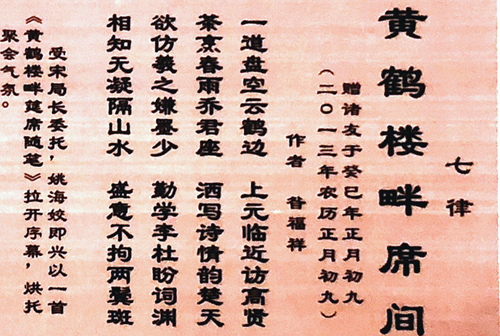 七律
黄鹤楼畔席间
赠诸友于癸巳年正月初九
（二〇一三年农历正月初九）
作者 昝福祥
一道盘空云鹤边 上元临近访高贤
茶烹春雨乔君座 洒写诗情韵楚天
欲仿羲之嫌墨少 勤学李杜盼词渊
相知无凝隔山水 盛意不拘两鬓斑
受宋局长委托，姚海姣即兴以一首
《黄鹤楼畔筵席随笔》拉开序幕，烘托
聚会气氛。